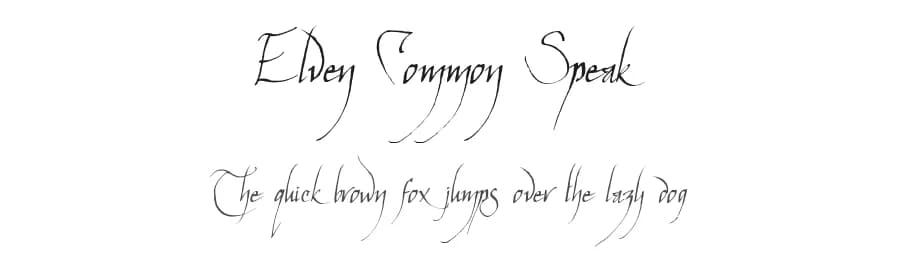 Elven Common Speak
The quick brown fox jumps over the lazy dog